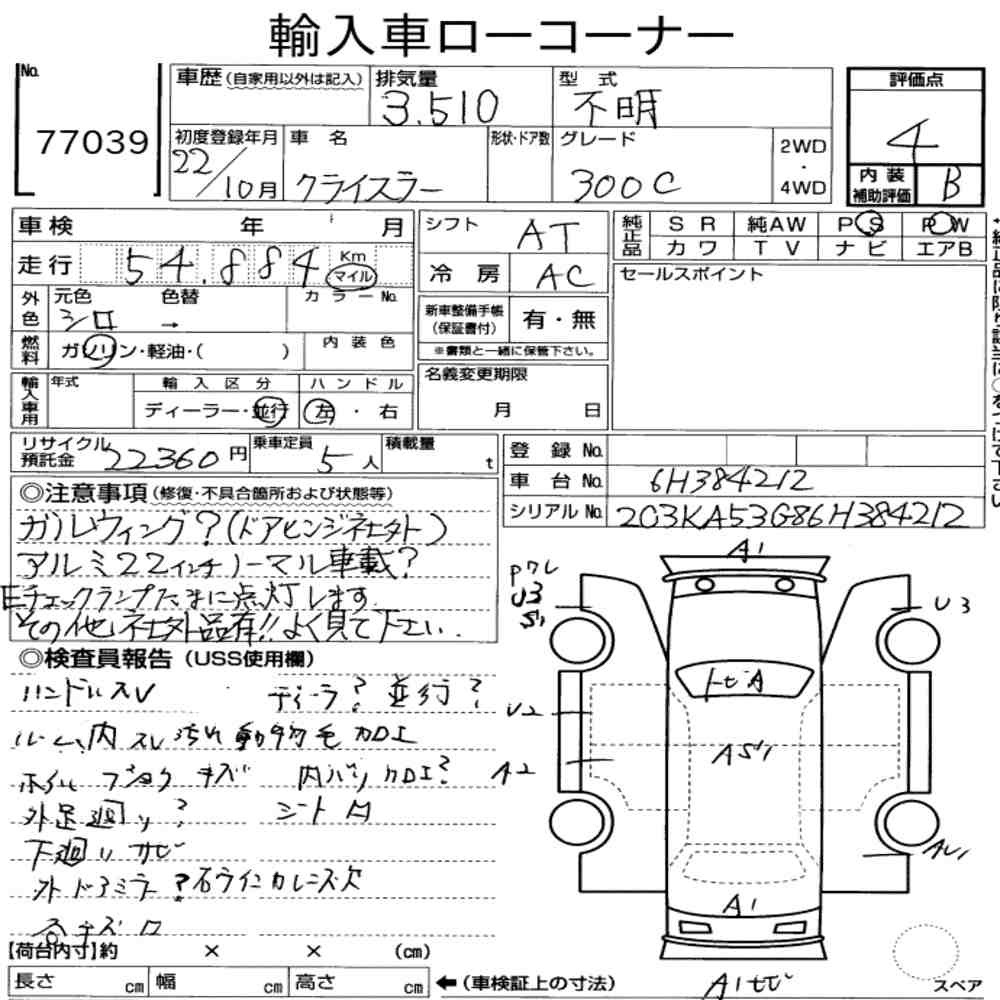 輸入車ローコーナー
No. 77039
車歴(自家用以外は記入) 排気量 3.510 型式 不明
初度登録年月 22/10月 車名 クライスラー 形状・ドア数 グレード 300C 2WD・4WD
評価点 4
内装補助評価 B
車検 年 月
走行 54.884 Km マイル
外色 元色 シロ 色替 → カラーNo.
燃料 ガソリン・軽油・( ) 内装色
輸入車用 年式 輸入区分 ディーラー・並行 ハンドル 左・右
シフト AT
冷房 AC
新車整備手帳(保証書付) 有・無
※書類と一緒に保管下さい。
名義変更期限 月 日
純正品 SR 純AW PS PW
カワ TV ナビ エアB
セールスポイント
リサイクル預託金 22360円 乗車定員 5人 積載量 t
登録No.
車台No. 6H384212
シリアルNo. 2C3KA53G86H384212
◎注意事項(修復・不具合箇所および状態等)
ガルウィング?(ドアヒンジ社外)
アルミ22インチノーマル車載?
Eチェックランプたまに点灯します
その他社外品有!!よく見て下さい.
◎検査員報告(USS使用欄)
ハンドルスレ ディーラ?並行?
ルーム内スレ汚れ動物毛加工
ホイル キズ 内バリ加工?
外足廻り? シート
下廻りサビ
外ドアミラー?右ウインカレンズ欠
【荷台内寸】約 × × (cm)
長さ cm 幅 cm 高さ cm ←(車検証上の寸法)
A1
U3
S1
U3
U2
A2
トビA
AS1
AU1
A1
スペア